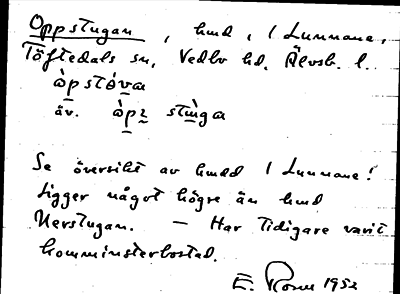 Oppstugan, hmd, 1 Lunnane,
Töftedals sn, Vedbo hd, Älvsb. l.
òpstóva
äv. òpə stùga
Se översikt av hmdd 1 Lunnane!
Ligger något högre än hmd
Nerstugan. — Har tidigare varit
komministerbostad.
E. Rosu 1952